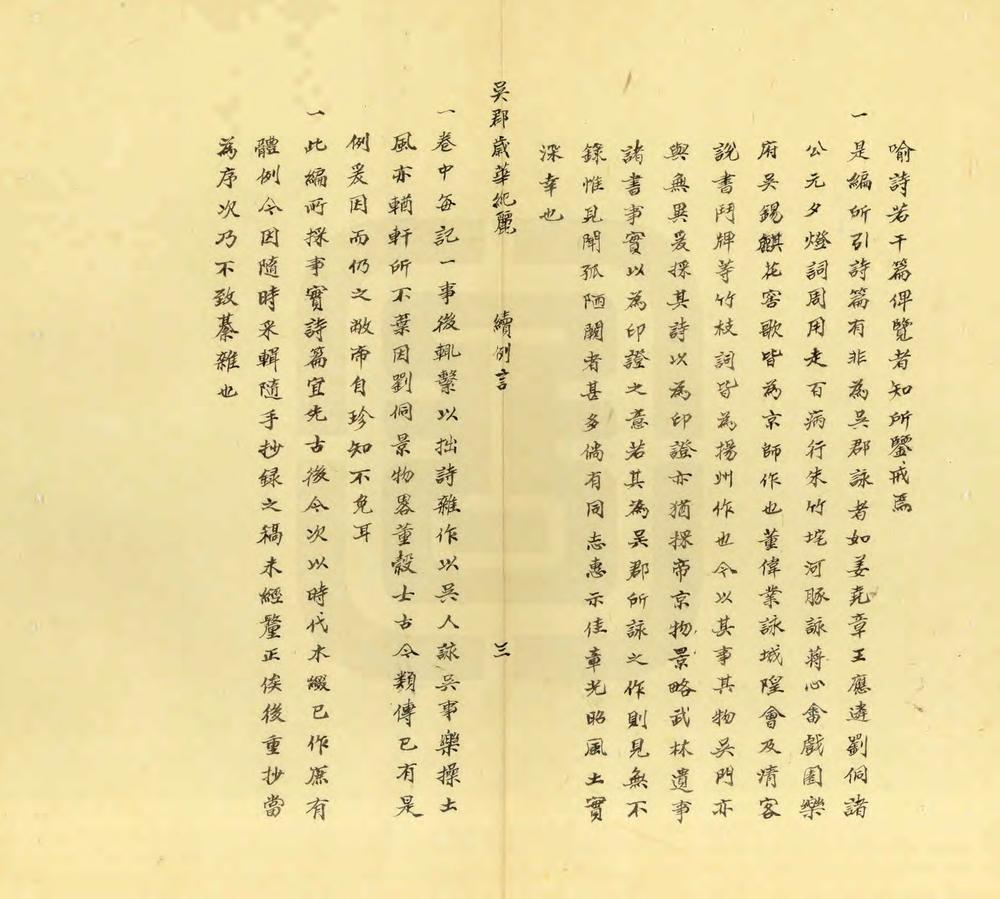 喻詩若干篇俾覽者知所鑒戒焉
一是編所引詩篇有非為吳郡詠者如姜堯章王應遴劉侗諸
公元夕燈詞周用走百病行朱竹垞河豚詠蔣心畬戲園樂
府吳錫麒花窖歌皆為京師作也董偉業詠城隍會及清客
說書鬥牌等竹枝詞皆為揚州作也令以其事其物吳門亦
與無異爰採其詩以為印證亦猶採帝京物景略武林遺事
諸書事實以為印證之意若其為吳郡所詠之作則見無不
錄惟見聞孤陋闕者甚多倘有同志惠示佳章光昭風土實
深幸也
吳郡歲華紀麗 續例言 三
一卷中每記一事後輒繫以拙詩雜作以吳人詠吳事樂操土
風亦輶軒所不棄因劉侗景物畧董穀士古今類傳已有是
例爰因而仍之敝帚自珍知不免耳
一此編所採事實詩篇宜先古後今次以時代木綴已作庶有
體例今因隨時采輯隨手抄錄之稿未經釐正俟後重抄當
為序次乃不致綦雜也